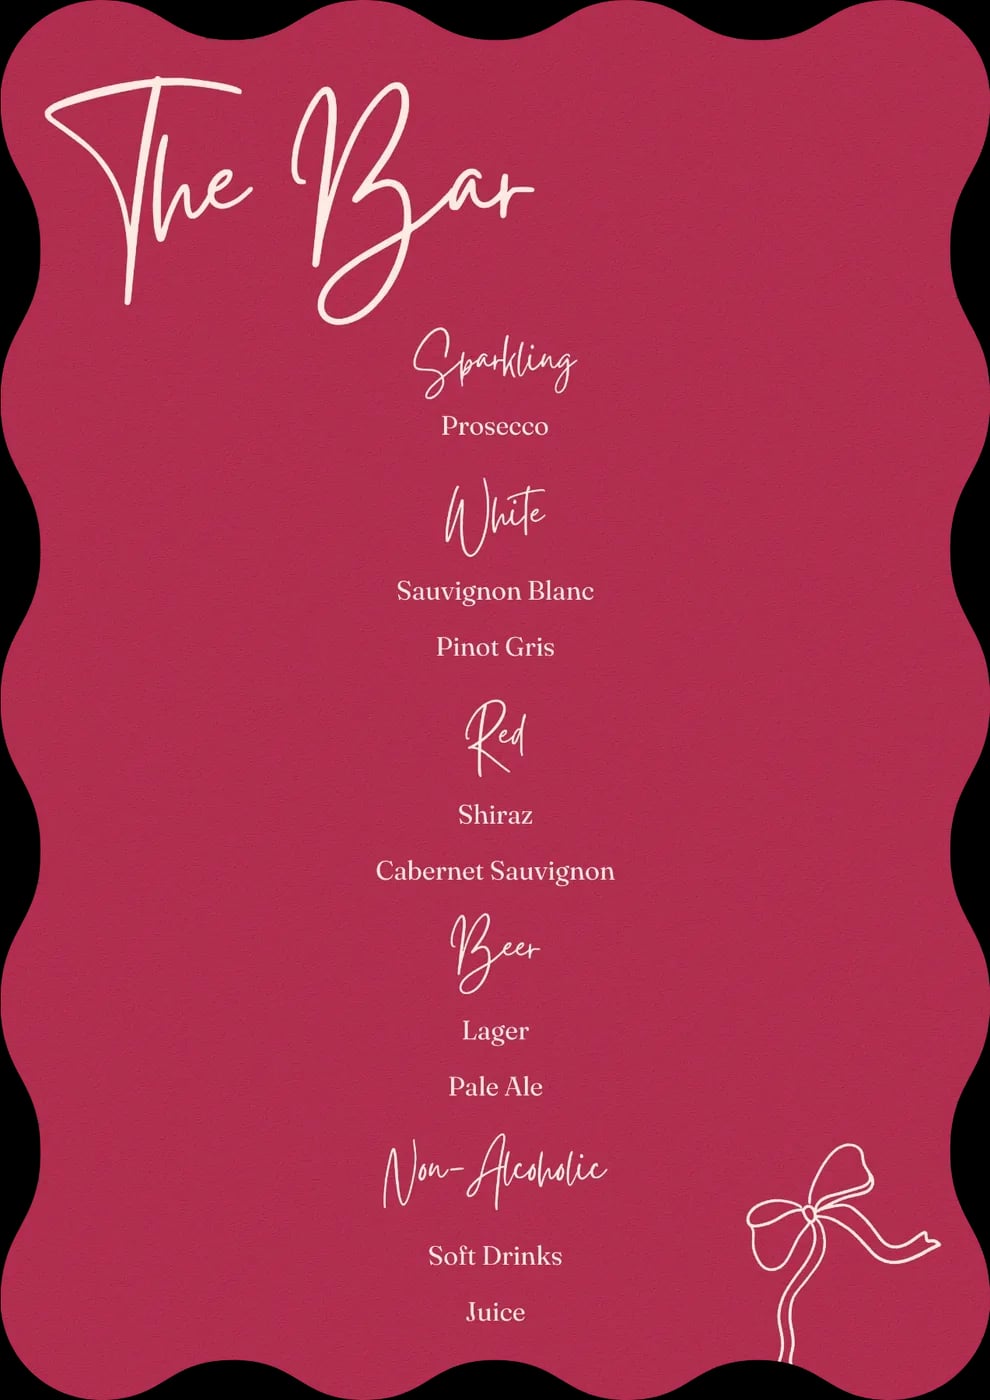 The Bar
Sparkling
Prosecco
White
Sauvignon Blanc
Pinot Gris
Red
Shiraz
Cabernet Sauvignon
Beer
Lager
Pale Ale
Non-Alcoholic
Soft Drinks
Juice